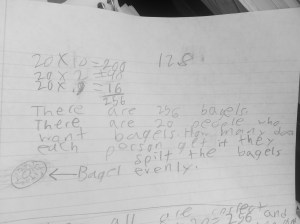 20 X 10 = 200 12.8
20 X 2 = 40
20 X .8 = 16
256
There are 256 bagels
There are 20 people who
want bagels. How many does
each person get if they
spilt the bagels
evenly.
Bagel
all are correct
256 and